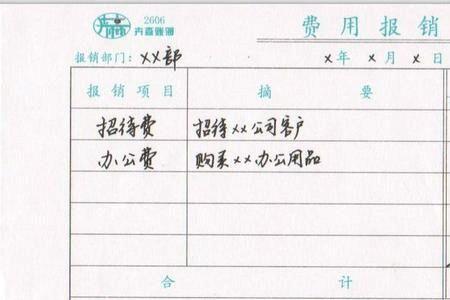 2606
卉森账簿
费用报销
报销部门：XX部 X年X月X日
报销项目 摘要
招待费 招待xx公司客户
办公费 购买xx办公用品
合计